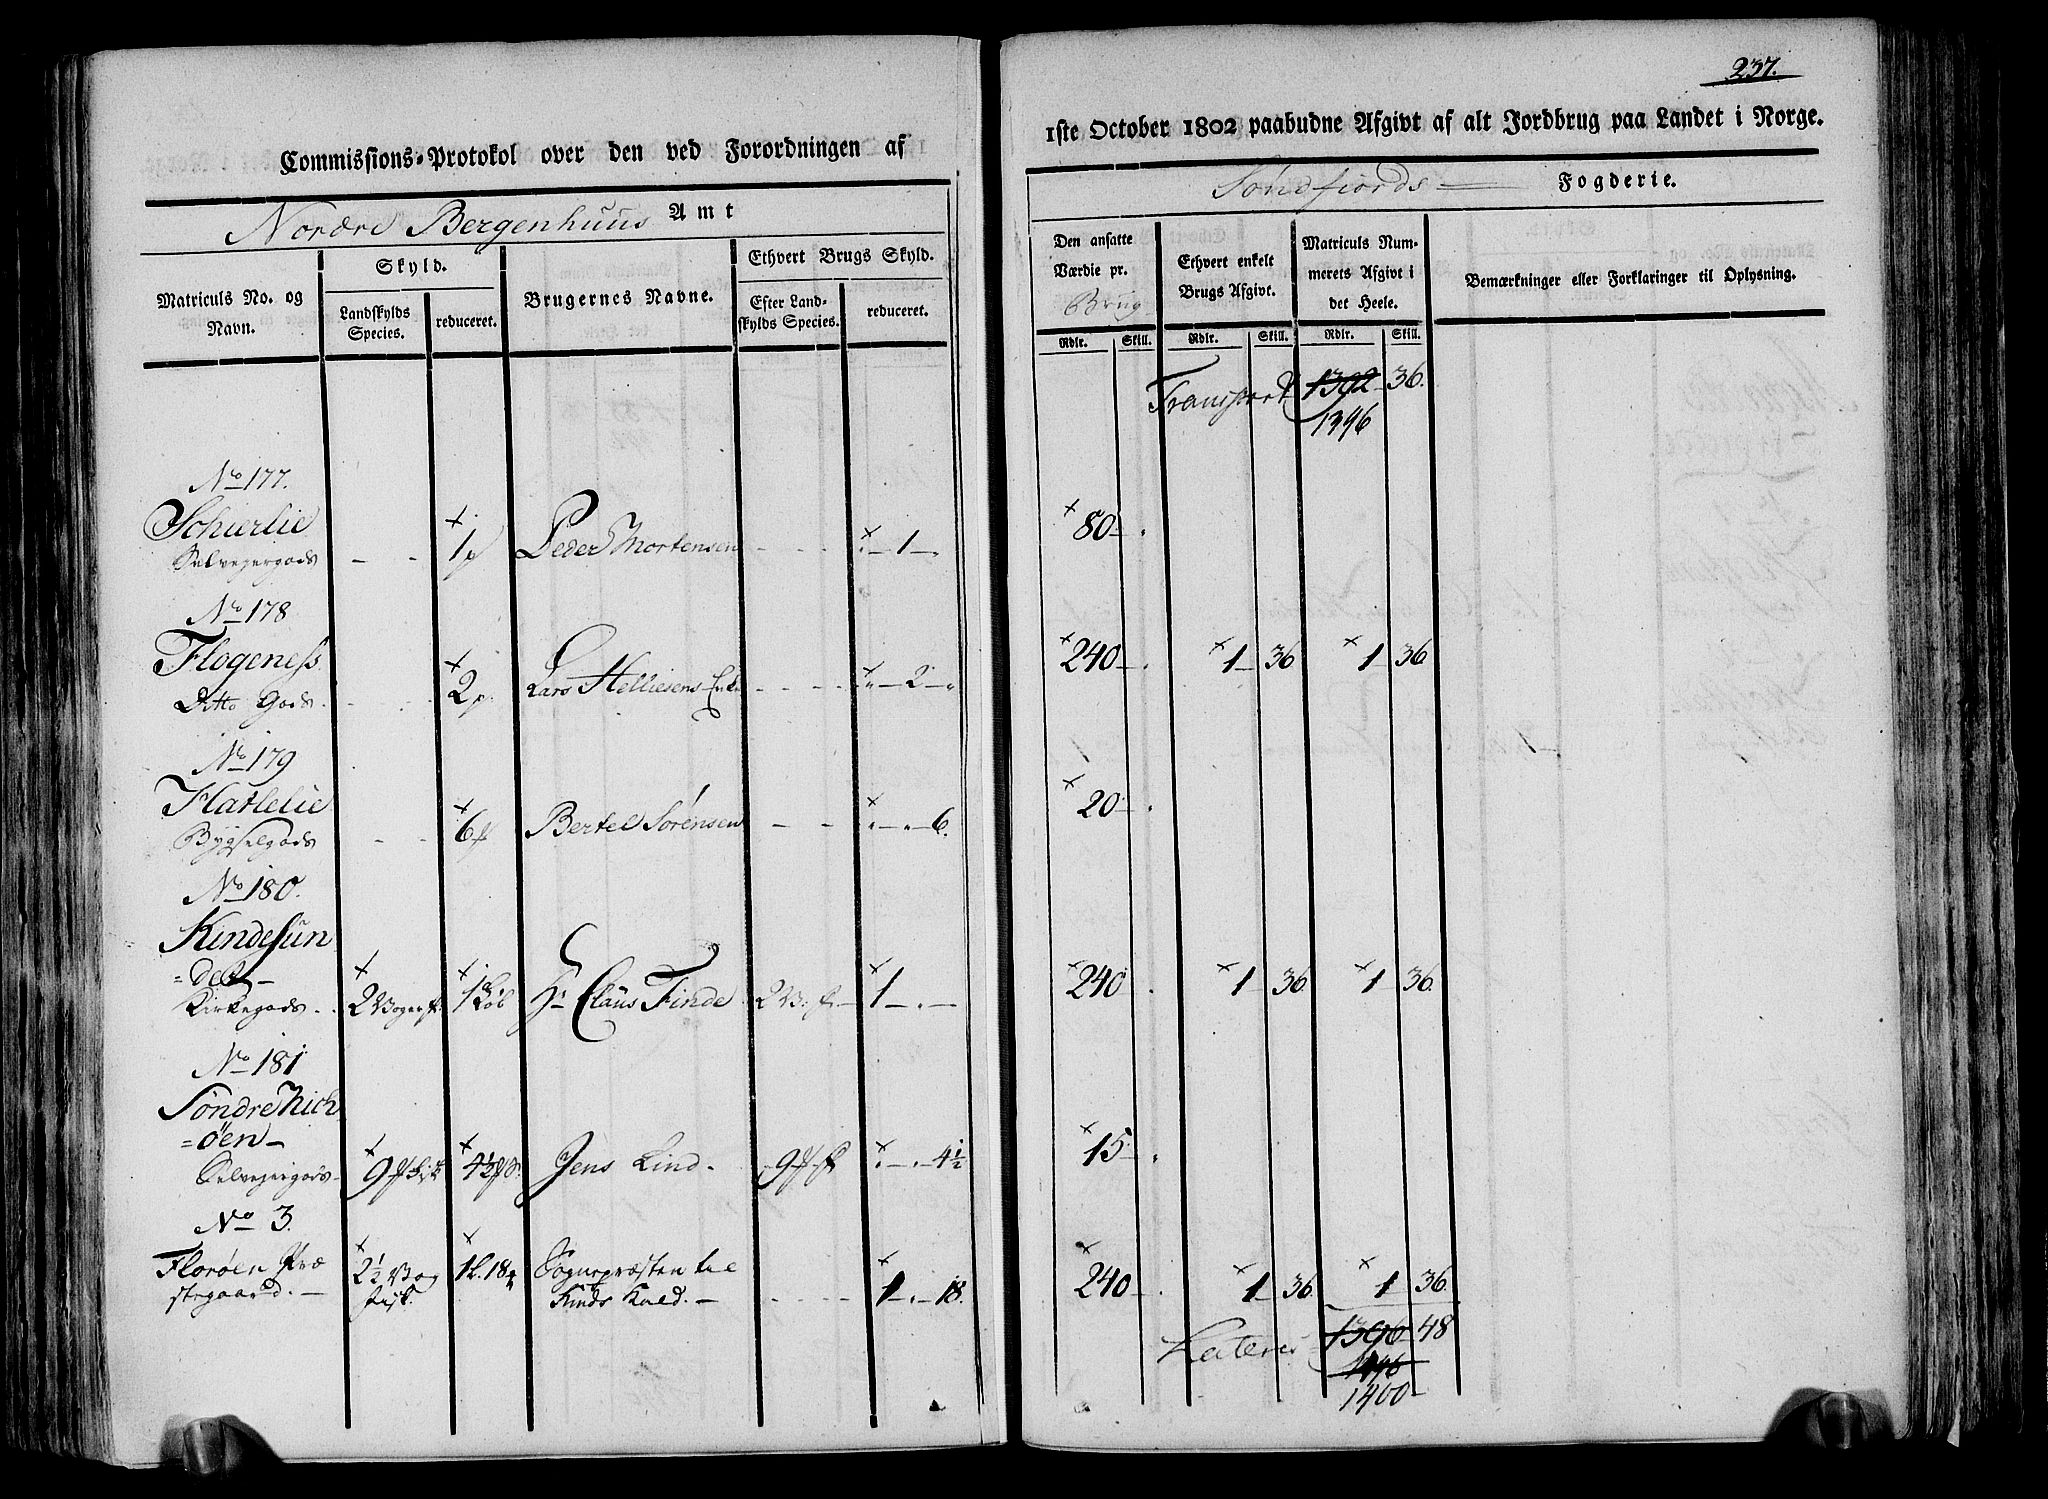 Commissions-Protokol over den ved Forordningen af
Nordre Bergenhuus Amt
Matriculs No. og Navn.
Skyld.
Landskylds Species.
reduceret.
Brugernes Navne.
Ethvert Brugs Skyld.
Efter Landskylds Species.
reduceret.
No 177.
Schierlie
Selvejergods - - 1 p Peder Mortensen - - - " - 1 - "
No 178
Flogeness
Ditto Gods. - - 2 p. Lars Helliesens Enke - - - - " - 2 - "
No 179
Hatlelie
Bygselgods - - 6 Bertel Sørensen - - " - " - 6.
No 180.
Kindesun
=det -
Kirkegods 2 Voger f. 1 Løb Hr Claus Finde 2 V: f. - 1 - " -
No 181
Søndre Nich
=öen -
Selvejergods - 9 fisk 4½ Jens Lind - 9 f " - " - 4½
No 3.
Florøen Præ
stegaard. - 2½ Vog fisk. 1 l. 18 Sognepræsten til
Kinds Kald. - - - - - 1 - " - 18.
237.
1ste October 1802 paabudne Afgivt af alt Jordbrug paa Landet i Norge.
Søndfiords Fogderie.
Den ansatte Værdie pr. Brug
Ethvert enkelt Brugs Afgivt.
Matriculs Nummerets Afgivt i det Heele.
Bemærkninger eller Forklaringer til Oplysning.
Rdlr. Skill. Rdlr. Skill. Rdlr. Skill.
Transport 1392 36.
1396
80 - "
240 - " 1 - 36 1 36
20 - "
240 " 1 - 36. 1 36.
15 - "
240 - " 1 - 36. 1 36.
Lateris 1396 - 48
1496
1400 -